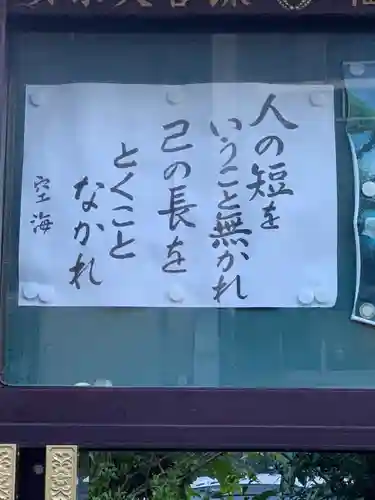 人の短を
いうこと無かれ
己の長を
とくこと
なかれ
空海